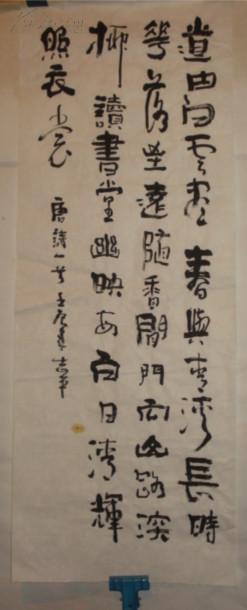 道由白雲盡春與青溪長時
花落至遠隨香閒門向山路深
柳讀書堂幽映每白日清輝
照衣裳
唐詩一首